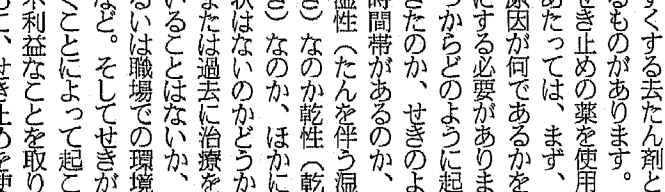 すくする去たん剤と
るものがあります。
せき止めの薬を使用
あたっては、まず、
原因が何であるかを
にする必要がありま
つからどのように起
きたのか、せきのよ
時間帯があるのか、
湿性（たんを伴う湿
き）なのか乾性（乾
き）なのか、ほかに
状はないのかどうか
または過去に治療を
いることはないか、
るいは職場での環境
など。そしてせきが
くことによって起こ
不利益なことを取り
もに、せき止めを使